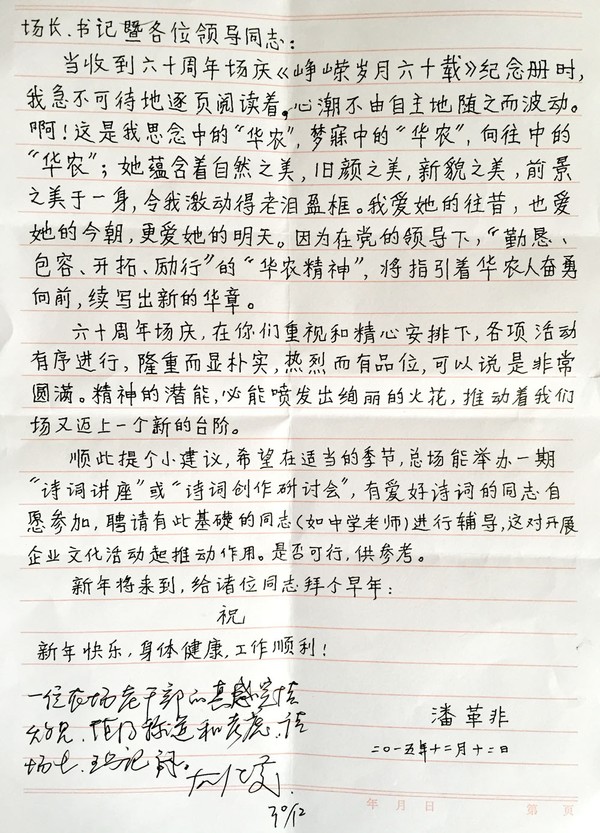 场长、书记暨各位领导同志：
当收到六十周年场庆《峥嵘岁月六十载》纪念册时，
我急不可待地逐页阅读着。心潮不由自主地随之而波动。
啊！这是我思念中的“华农”，梦寐中的“华农”，向往中的
“华农”；她蕴含着自然之美，旧颜之美，新貌之美，前景
之美于一身，令我激动得老泪盈框。我爱她的往昔，也爱
她的今朝，更爱她的明天。因为在党的领导下，“勤恳、
包容、开拓、励行”的“华农精神”，将指引着华农人奋勇
向前，续写出新的华章。
六十周年场庆，在你们重视和精心安排下，各项活动
有序进行，隆重而显朴实，热烈而有品位，可以说是非常
圆满。精神的潜能，必能喷发出绚丽的火花，推动着我们
场又迈上一个新的台阶。
顺此提个小建议，希望在适当的季节，总场能举办一期
“诗词讲座”或“诗词创作研讨会”，有爱好诗词的同志自
愿参加，聘请有此基礎的同志（如中学老师）进行辅导，这对开展
企业文化活动起推动作用。是否可行，供参考。
新年将来到，给诸位同志拜个早年：
祝
新年快乐，身体健康，工作顺利！
潘革非
二〇一五年十二月十二日
一位农场老干部的真感实情
和考虑，请
场长、书记
30/12
年 月 日
第 页